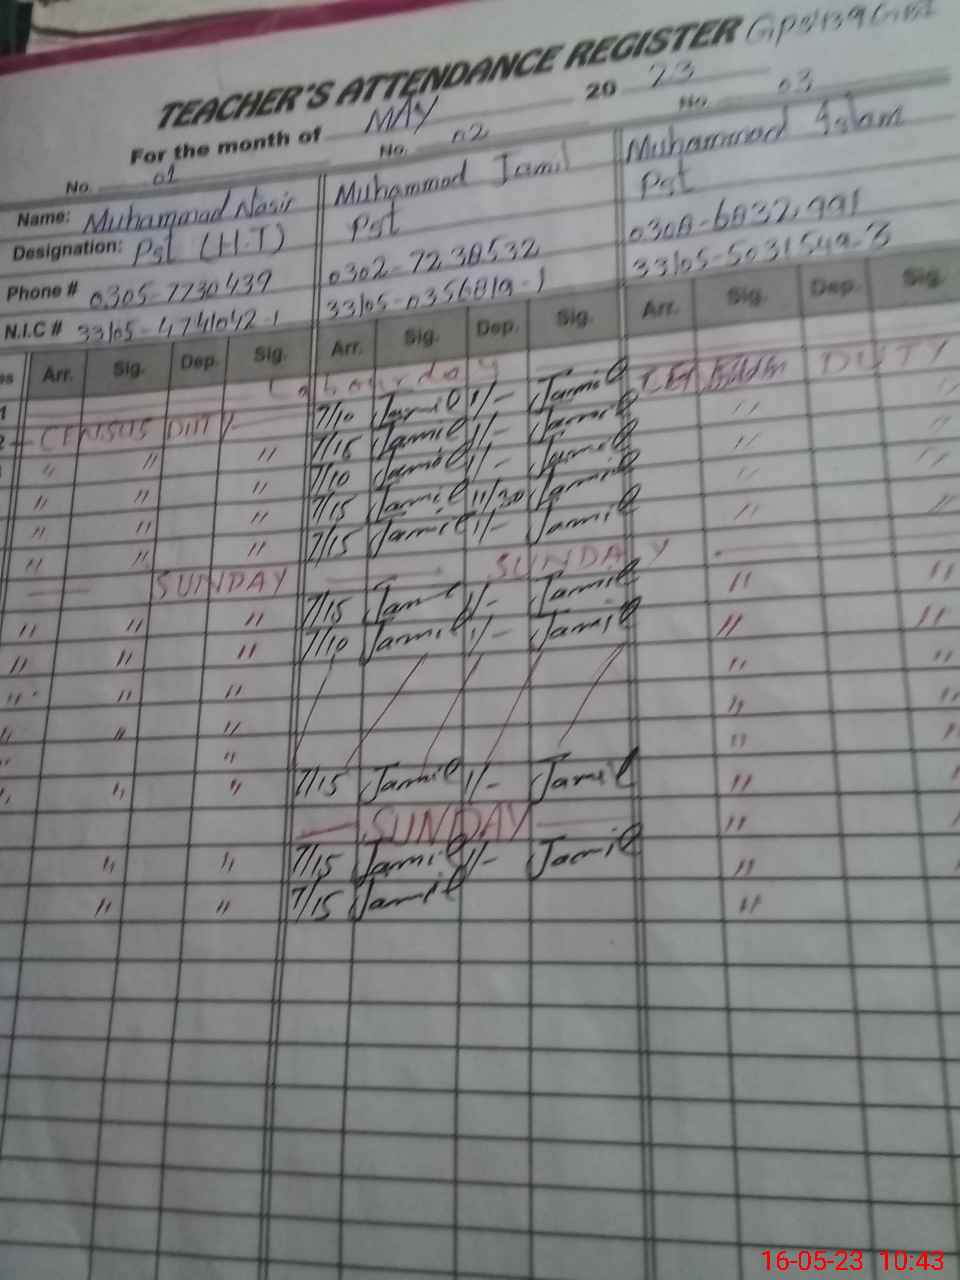 TEACHER'S ATTENDANCE REGISTER
For the month of MAY 20 23
No. 01 No. 02 No. 03
Name: Muhammad Nasir Muhammad Jamil Muhammad Aslam
Designation: Pst (H.T) Pst Pst
Phone # 0305-7730439 0302-7238532 0308-6832991
N.I.C # 33105-4741042-1 33105-0356819-1 33105-5031549-3
Arr. Sig. Dep. Sig. Arr. Sig. Dep. Sig. Arr. Sig. Dep. Sig.
1 Labour day
2 CENSUS DUTY 7/10 Jamil 1/- Jamil DUTY
" " " 7/15 Jamil 1/- Jamil " "
" " " 7/10 Jamil 1/- Jamil " "
" " " 7/15 Jamil 11/30 Jamil " "
" " " 7/15 Jamil 1/- Jamil " "
SUNDAY SUNDAY
" " " 7/15 Jamil 1/- Jamil " "
" " " 7/10 Jamil 1/- Jamil " "
" " " " "
" " " " "
" "
" " " 7/15 Jamil 1/- Jamil " "
SUNDAY " "
" " 7/15 Jamil 1/- Jamil "
" " 7/15 Jamil "
16-05-23 10:43